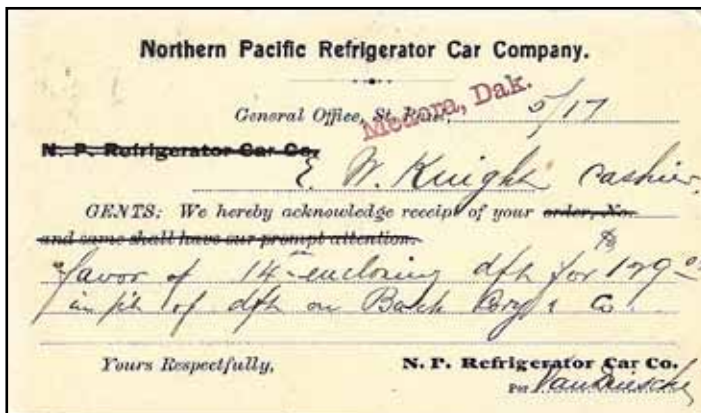 Northern Pacific Refrigerator Car Company.
General Office, St. Paul, 5/17
Medora, Dak.
N. P. Refrigerator Car Co.
E. W. Knight Cashier,
GENTS: We hereby acknowledge receipt of your order, No.
and same shall have our prompt attention.
favor of 14th enclosing dft for 129
of dft on Bach Cory & Co.
Yours Respectfully, N. P. Refrigerator Car Co.
Per VanDriesche